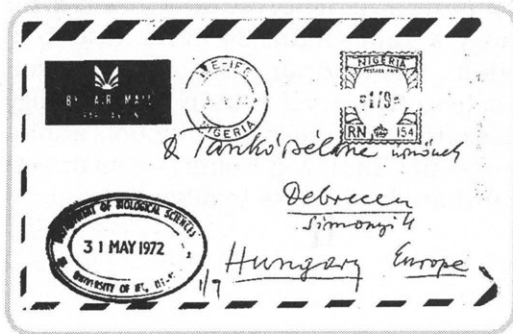 BY AIR MAIL
PAR AVION
ILE-IFE
NIGERIA
NIGERIA
POSTAGE PAID
1/9
RN 154
Tankó Béláné
Debrecen
Simonyi
Hungary Europe
DEPARTMENT OF BIOLOGICAL SCIENCES
31 MAY 1972
UNIVERSITY OF IFE,